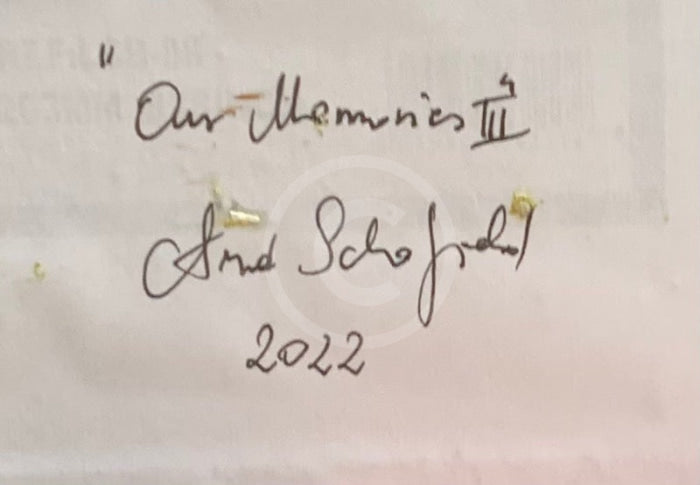 "Our Memories III"
Schofield
2022